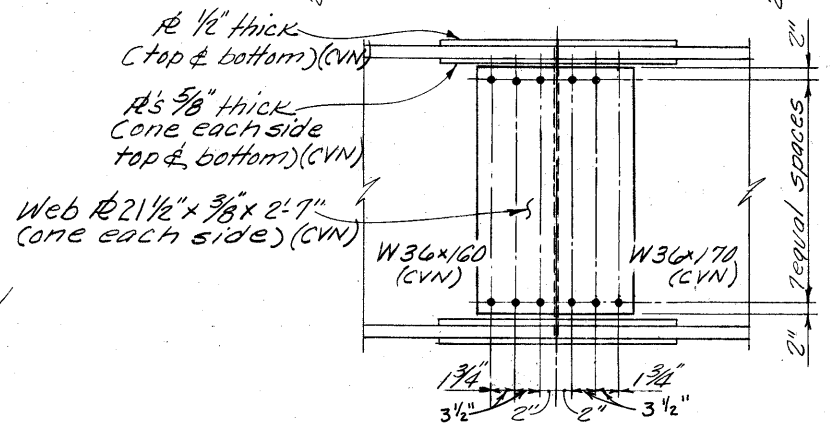 ℄ 1/2" thick
(top & bottom)(CVN)
℄'s 5/8" thick
(one each side
top & bottom)(CVN)
Web ℄ 21 1/2" x 3/8" x 2'-7"
(one each side)(CVN)
W36x160
(CVN)
W36x170
(CVN)
2"
7 equal spaces
2"
1 3/4"
3 1/2"
2"
2"
3 1/2"
1 3/4"